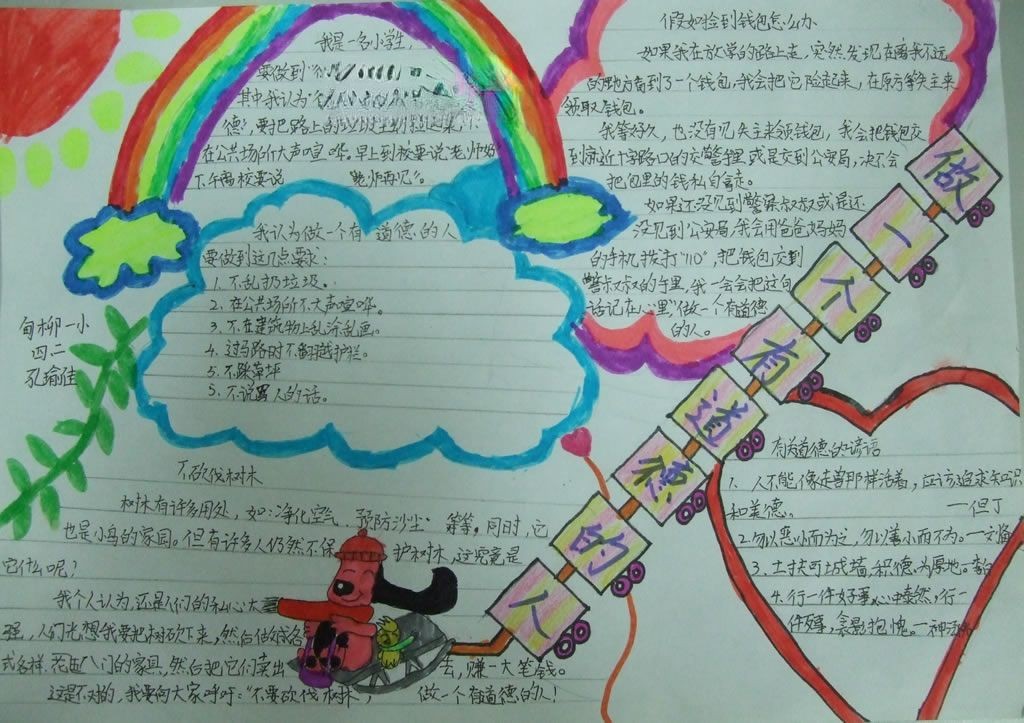 我是一名小学生,
要做到"
其中我认为
德",要把路上的
在公共场所大声喧哗。早上到校要说"老师好"
下午离校要说 老师再见"。
我认为做一个有道德的人
要做到这几点要求:
1. 不乱扔垃圾。
2. 在公共场所不大声喧哗。
3. 不在建筑物上乱涂乱画。
4. 过马路时不翻越护栏。
5. 不踩草坪
5. 不说骂人的话。
甸柳一小
四二
孔瑜佳
假如捡到钱包怎么办
如果我在放学的路上走,突然发现在离我不远
的地方看到了一个钱包,我会把它险起来,在原方等失主来
领取钱包。
我等好久,也没有见失主来领钱包,我会把钱包交
到就近十字路口的交警手里或是交到公安局,决不会
把包里的钱私自拿走。
如果还没见到警察叔叔或是还
没见到公安局,我会用爸爸妈妈
的手机拨打"110",把钱包交到
警察叔叔的手里,我一会会把这句
话记在心里"做一个有道德
的人。
做一个有道德的人
不砍伐树木
树木有许多用处,如:净化空气、预防沙尘 等等。同时,它
也是小鸟的家园。但有许多人仍然不保 护树木,这究竟是
它什么呢?
我个人认为,还是人们的私心太
强,人们光想我要把树砍下来,然后做成各
式各样、花 八门的家具,然后把它们卖出 去,赚一大笔钱。
这是不对的,我要向大家呼吁:"不要砍伐树木, 做一个有道德的人!
有关道德的谚语
1、人不能像走兽那样活着,应该追求知识
和美德。 —但丁
2.勿以恶小而为之,勿以善小而不为。
3、土扶可上成墙,积德为厚地。
4.行一件好事心中泰然,行一
件歹事,衾影抱愧。